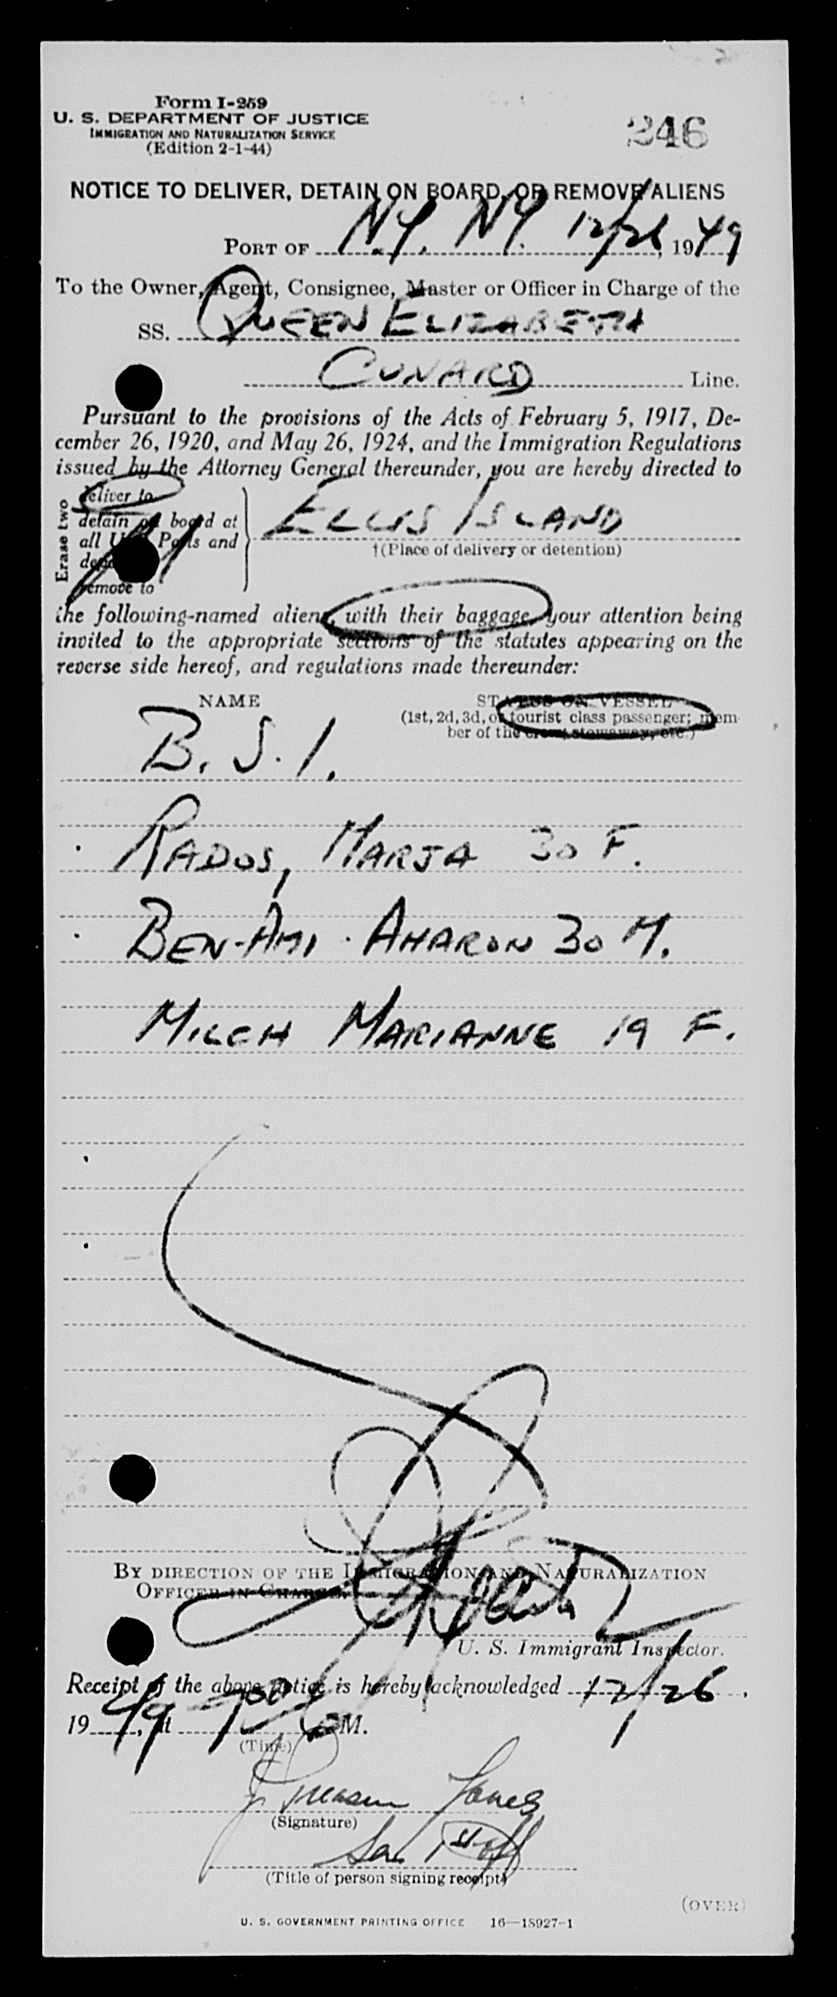 Form I-259
U. S. DEPARTMENT OF JUSTICE
IMMIGRATION AND NATURALIZATION SERVICE
(Edition 2-1-44)
246
NOTICE TO DELIVER, DETAIN ON BOARD, OR REMOVE ALIENS
PORT OF N.Y. N.Y. 12/26, 1949
To the Owner, Agent, Consignee, Master or Officer in Charge of the
SS. QUEEN ELIZABETH
CUNARD Line.
Pursuant to the provisions of the Acts of February 5, 1917, De-
cember 26, 1920, and May 26, 1924, and the Immigration Regulations
issued by the Attorney General thereunder, you are hereby directed to
Erase two
deliver to
detain on board at
all U. S. Ports and
remove to
ELLIS ISLAND
†(Place of delivery or detention)
the following-named aliens, with their baggage, your attention being
invited to the appropriate sections of the statutes appearing on the
reverse side hereof, and regulations made thereunder:
NAME
STATUS ON VESSEL
(1st, 2d, 3d, or tourist class passenger; mem-
ber of the crew, stowaway, etc.)
B. S. I.
RADOS, MARJA 30 F.
BEN-AMI · AHARON 30 M.
MILCH MARIANNE 19 F.
BY DIRECTION OF THE IMMIGRATION AND NATURALIZATION
OFFICER IN CHARGE.
U. S. Immigrant Inspector.
Receipt of the above notice is hereby acknowledged 12/26,
1949, at 700 PM.
(Time)
Jones
(Signature)
(Title of person signing receipt)
(OVER)
U. S. GOVERNMENT PRINTING OFFICE 16—18927-1